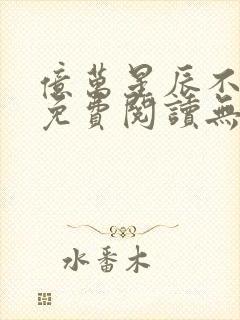 億萬星辰不
免費閱讀無
水番木